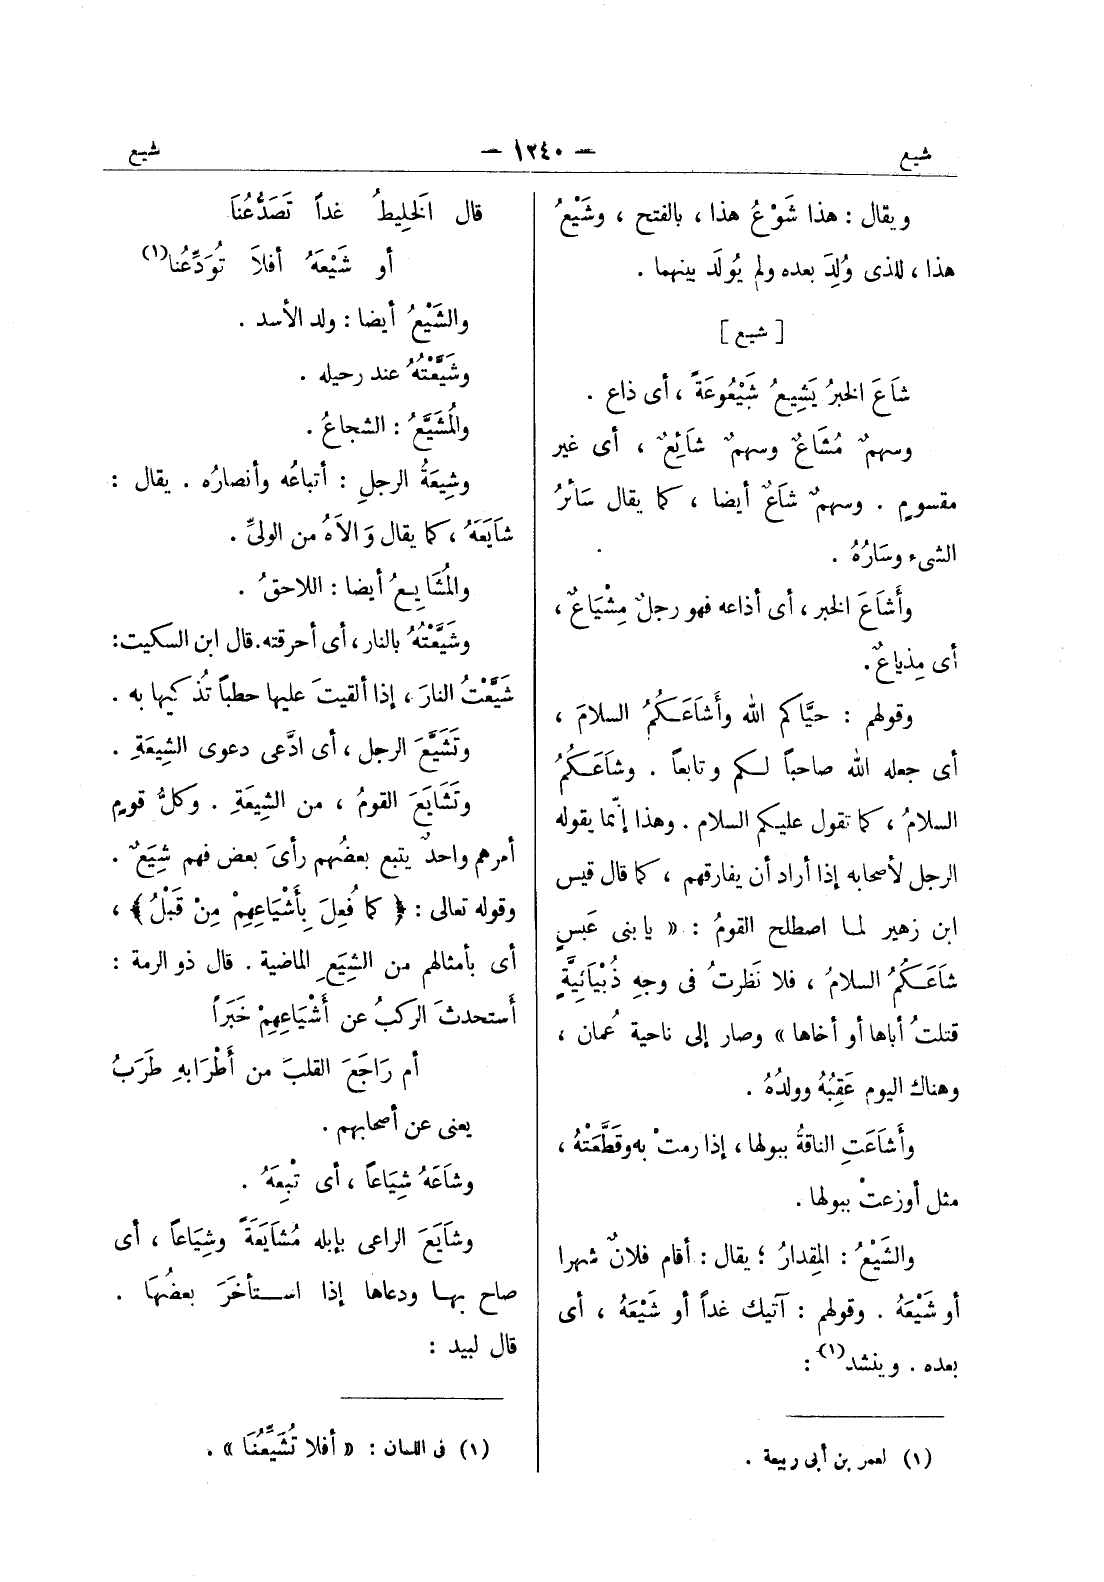 شيع
— ١٢٤٠ —
شيع
ويقال : هذا شَوْعُ هذا ، بالفتح ، وشَيْعُ
هذا ، للذى وُلِدَ بعده ولم يُولَد بينهما .
[ شيع ]
شَاعَ الخبرُ يَشِيعُ شَيْعُوعَةً ، أى ذاع .
وسهمٌ مُشَاعٌ وسهمٌ شَائِعٌ ، أى غير
مقسومٍ . وسهمٌ شَاعٌ أيضا ، كما يقال سَائرُ
الشىء وسَارُهُ .
وأَشَاعَ الخبر ، أى أذاعه فهو رجلٌ مِشْيَاعٌ ،
أى مِذياعٌ.
وقولهم : حيَّاكم الله وأَشَاعَـكُمُ السلامَ ،
أى جعله الله صاحباً لـكم وتابعاً . وشَاعَـكُمُ
السلامُ ، كما تقول عليـكم السلام . وهذا إنّما يقوله
الرجل لأصحابه إذا أراد أن يفارقهم ، كما قال قيس
ابن زهير لمـا اصطلح القومُ : « يا بنى عَبسٍ
شَاعَـكُمُ السلامُ ، فلا نَظرتُ فى وجهِ ذُبْيَانِيَّةٍ
قتلتُ أباها أو أخاها » وصار إلى ناحية عُمان ،
وهناك اليوم عَقِبُهُ وولدُهُ .
وأَشَاعَتِ الناقةُ ببولها ، إذا رمتْ به وقَطَّعَتْهُ ،
مثل أوزعتْ ببولها .
والشَيْعُ : المِقدارُ ؛ يقال : أقام فلانٌ شهرا
أو شَيْعَهُ . وقولهم : آتيك غداً أو شَيْعَهُ ، أى
بعده . وينشد(١) :
(١) لعمر بن أبى ربيعة .
قال الخَلِيطُ غداً تَصَدُّعُنَا
أو شَيْعَهُ أفلاَ تُوَدِّعُنا(١)
والشَيْعُ أيضا : ولد الأسد .
وشَيَّعْتُهُ عند رحيله .
والمُشَيَّعُ : الشجاعُ .
وشِيعَةُ الرجلِ : أتباعُه وأنصارُه . يقال :
شَايَعَهُ ، كما يقال وَالاَهُ من الولىِّ .
والمُشَايِعُ أيضا : اللاحقُ .
وشَيَّعْتُهُ بالنار ، أى أحرقته.قال ابن السكيت:
شَيَّعْتُ النارَ ، إذا ألقيتَ عليها حطباً تُذكيها به .
وتَشَيَّعَ الرجل ، أى ادَّعى دعوى الشِيعَةِ .
وتَشَايَعَ القومُ ، من الشِيعَةِ . وكلُّ قومٍ
أمرهم واحدٌ يتبع بعضُهم رأىَ بعض فهم شِيَعٌ .
وقوله تعالى : ﴿ كما فُعِلَ بِأَشْيَاعِهِمْ مِنْ قَبْلُ ﴾ ،
أى بأمثالهم من الشِيَعِ الماضية . قال ذو الرمة :
أَستحدثَ الركبُ عن أَشْيَاعِهِمْ خَبَراً
أم رَاجَعَ القلبَ من أَطْرَابهِ طَرَبُ
يعنى عن أصحابهم .
وشَاعَهُ شِيَاعاً ، أى تْبِعَهُ .
وشَايَعَ الراعى بإبله مُشَايَعَةً وشِيَاعاً ، أى
صاح بهـا ودعاها إذا اسـتأخَرَ بعضُهَا .
قال لبيد :
(١) فى اللسان : « أفلا تُشَيِّعُنَا » .